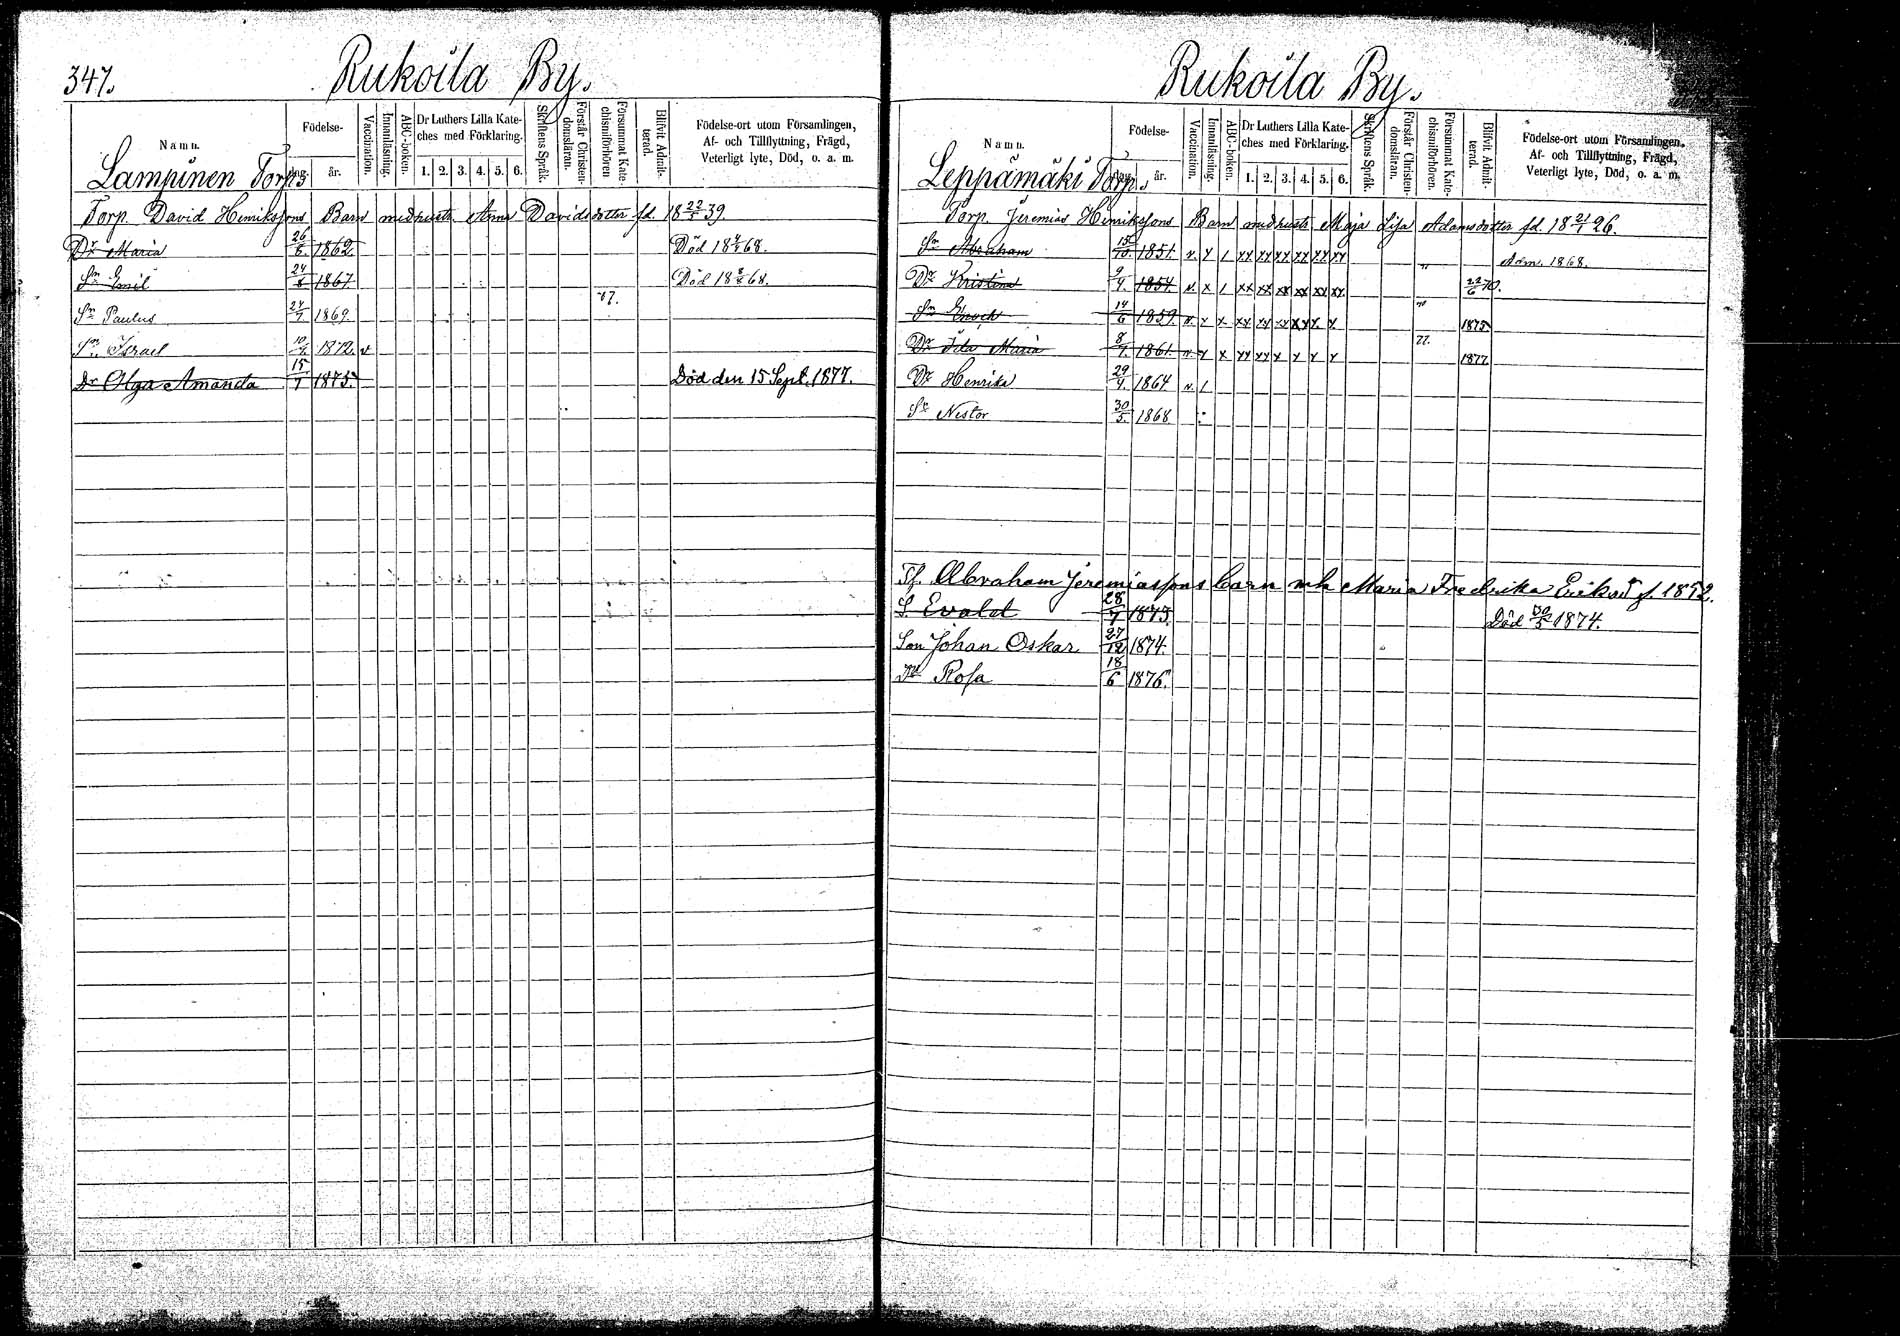 347.
Rukoila By.
Namn.
Födelse-
dag.
år.
Vaccination.
Innanläsning.
ABC-boken.
Dr Luthers Lilla Kate-
ches med Förklaring.
1. 2. 3. 4. 5. 6.
Skriftens Språk.
Förstår Christen-
domsläran.
Försummat Kate-
chismiförhören
Blifvit Admit-
terad.
Födelse-ort utom Församlingen,
Af- och Tillflyttning, Frägd,
Veterligt lyte, Död, o. a. m.
Lampinen Torp.
Torp. David Henrikssons Barn med hustr. Anna Davidsdotter fd. 18 22/5 39
Dr Maria 26/6. 1862. Död 18 4/4 68.
Sn Emil 24/8 1867 Död 18 8/5 68.
Sn Paulus 24/7 1869. 77.
Sn Israel 10/4 1872. v
Dr Olga Amanda 15/7 1875. Död den 15 Sept. 1877.
Rukoila By.
Namn.
Födelse-
dag.
år.
Vaccination.
Innanläsning.
ABC-boken.
Dr Luthers Lilla Kate-
ches med Förklaring.
1. 2. 3. 4. 5. 6.
Skriftens Språk.
Förstår Christen-
domsläran.
Försummat Kate-
chismiförhören.
Blifvit Admit-
terad.
Födelse-ort utom Församlingen.
Af- och Tillflyttning, Frägd,
Veterligt lyte, Död, o. a. m.
Leppämäki Torp.
Torp. Jeremias Henrikssons Barn med hustr. Maja Lisa Adamsdotter fd. 18 21/1 26.
Sn Abraham 15/10. 1851. v. x 1 xx xx xx xx xx xx " Adm. 1868.
Dr Kristina 9/4. 1854. v. x 1 xx xx xx xx xx xx 22/6 70.
Sn Enoch 14/6 1859. v. x x xx xx xx xx x. x " 1875
Dr Ida Maria 8/4. 1861. v. x x xx xx x x x x 77. 1877
Dr Henrika 29/4. 1864 v. 1
Sn Nestor 30/5. 1868.
Tf. Abraham Jeremiassons barn mh Maria Fredrika Eriksd. f. 1852.
S. Evald 28/7 1873. Död 30/5 1874.
Son Johan Oskar 27/12 1874.
Dr Rosa 18/6 1876.